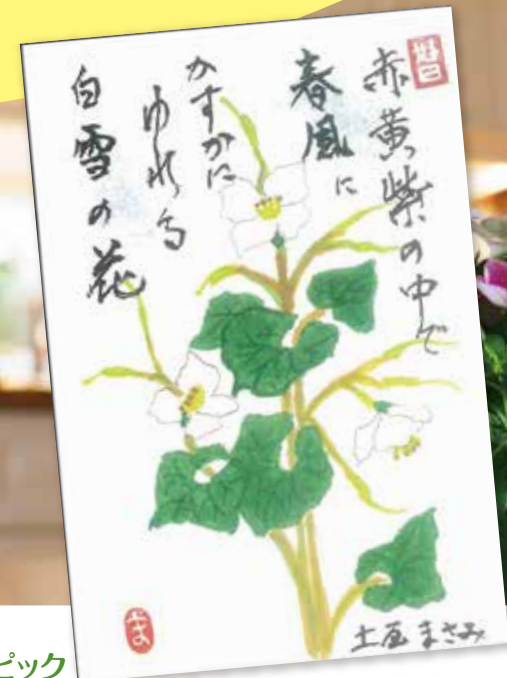 赤黄紫の中で
春風に
かすかに
ゆれる
白雪の花
土屋まさみ
ピック